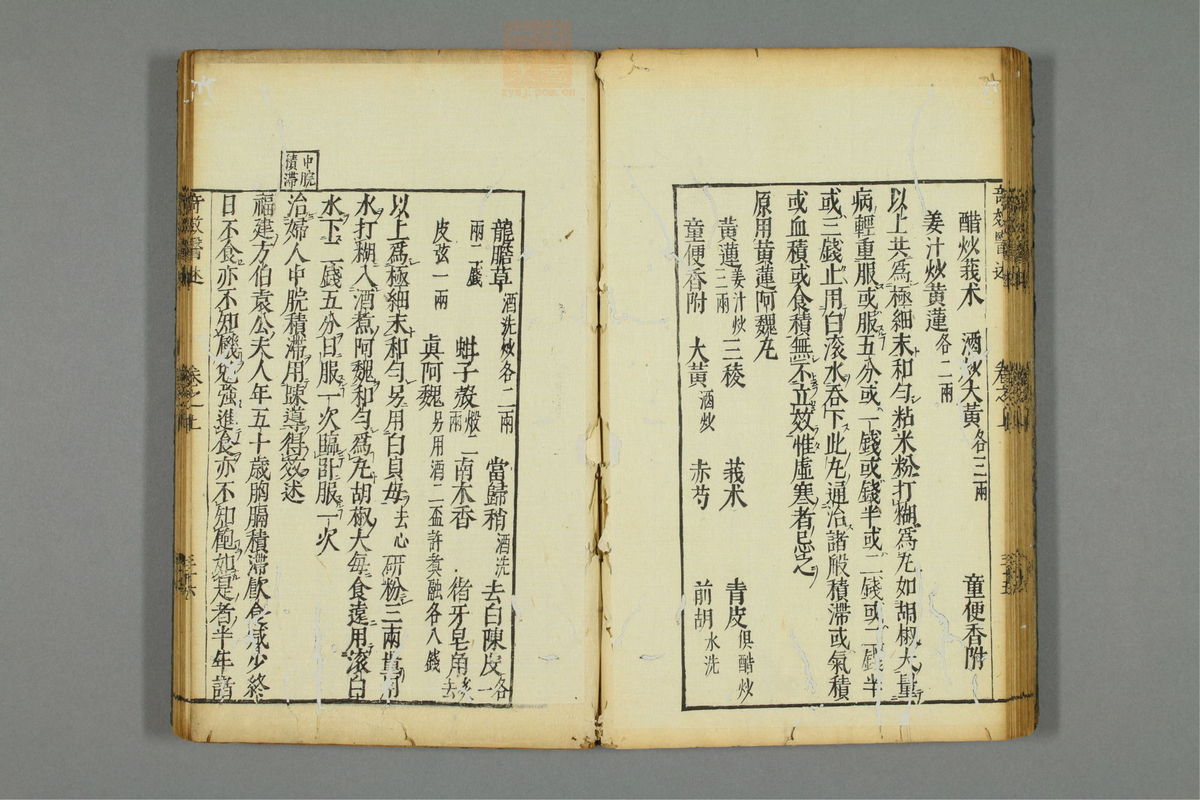 醋炒莪术　酒炒大黃各三兩　童便香附
姜汁炒黃蓮各二兩
以上共爲極細末和勻粘米粉打糊爲丸如胡椒大量
病輕重服或服五分或一錢或錢半或二錢或二錢半
或三錢止用白滾水吞下此丸通治諸般積滯或氣積
或血積或食積無不立效惟虛寒者忌之
原用黃蓮阿魏丸
黃蓮姜汁炒三兩　三稜　莪术　青皮俱醋炒
童便香附　大黃酒炒　赤芍　前胡水洗
龍膽草酒洗炒各二兩　當歸稍酒洗　去白陳皮各一
兩二錢　蚶子殼煅二兩　南木香　猪牙皂角去
皮弦一兩　眞阿魏另用酒二盃許煑融各八錢
以上爲極細末和勻另用白貝毋去心研粉三兩
水打糊入酒煮阿魏和勻爲丸胡椒大每食遠用滾白
水下二錢五分日服一次臨卧服一次
中脘積滯
治婦人中脘積滯用踈導得效述
福建方伯袁公夫人年五十歲胸膈積滯飲食減少終
日不食亦不知饑勉強進食亦不知飽如是者半年諸